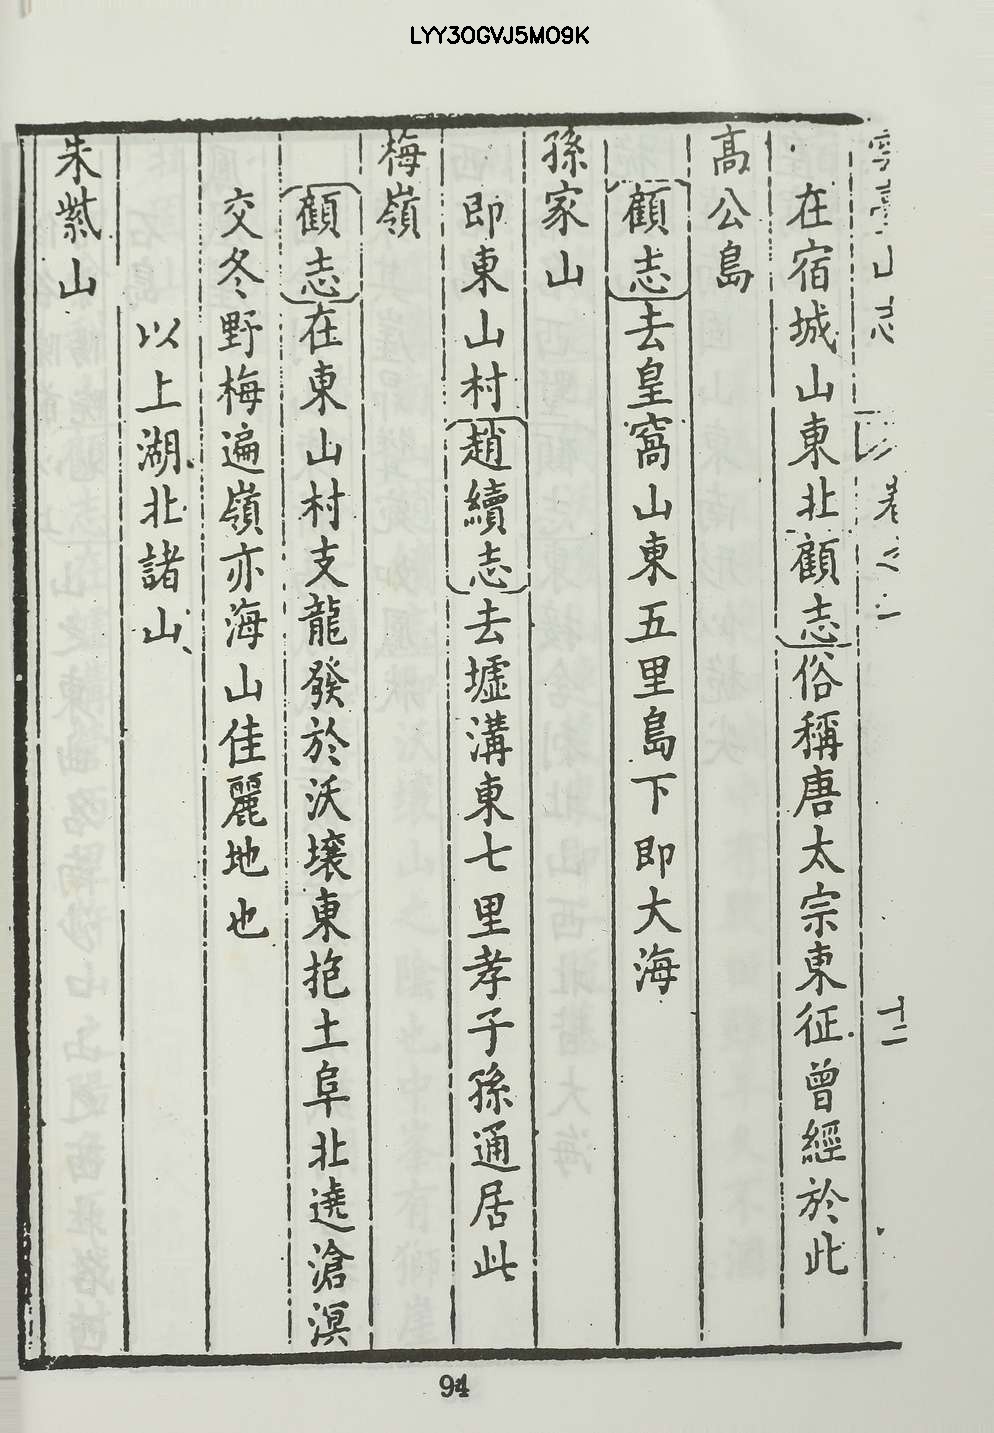 LYY3OGVJ5MO9K
卷之二
十二
在宿城山東北顧志俗稱唐太宗東征曾經於此
高公島
顧志去皇窩山東五里島下即大海
孫家山
即東山村趙續志去墟溝東七里孝子孫通居此
梅嶺
顧志在東山村支龍發於沃壤東抱土阜北遶滄溟
交冬野梅遍嶺亦海山佳麗地也
以上湖北諸山
朱紫山
94